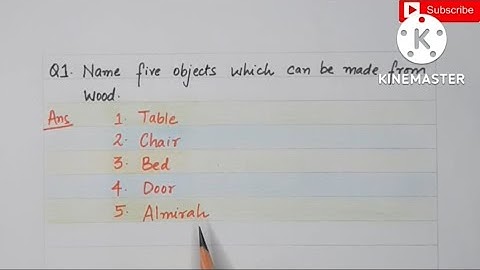 Subscribe
K
KINEMASTER
Q1. Name five objects which can be made from
wood.
Ans 1. Table
2. Chair
3. Bed
4. Door
5. Almirah